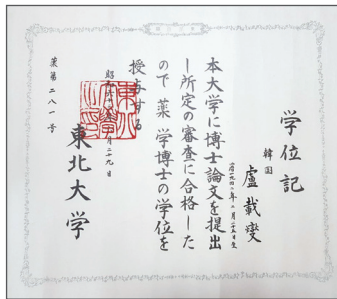 学位記
韓国
盧載燮
本大学に博士論文を提出
し所定の審査に合格した
ので薬学博士の学位を
授与する
東北大学
薬第二八一号